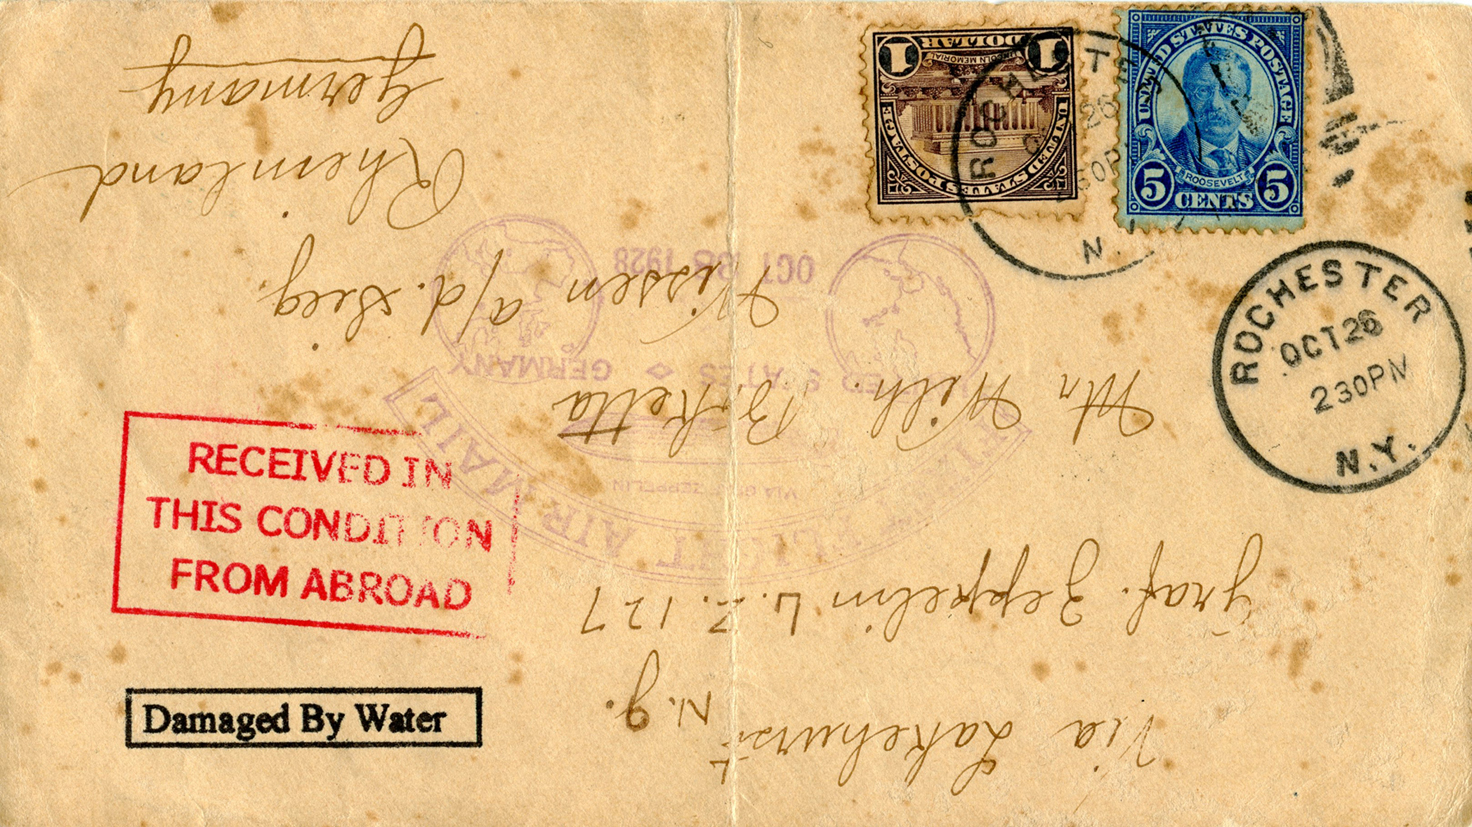 1 DOLLAR 1
LINCOLN MEMORIAL
UNITED STATES POSTAGE
UNITED STATES POSTAGE
ROOSEVELT
5 CENTS 5
ROCHESTER
26
30P
N.Y.
ROCHESTER
OCT 26
230 PM
N.Y.
Via Lakehurst
N.J.
Graf. Zeppelin L.Z. 127
Mr Wilh. Betta
Wissen a/d. Sieg.
Rheinland
Germany
FLIGHT AIR MAIL
VIA GRAF ZEPPELIN
UNITED STATES ◇ GERMANY
OCT 28 1928
RECEIVED IN
THIS CONDITION
FROM ABROAD
Damaged By Water